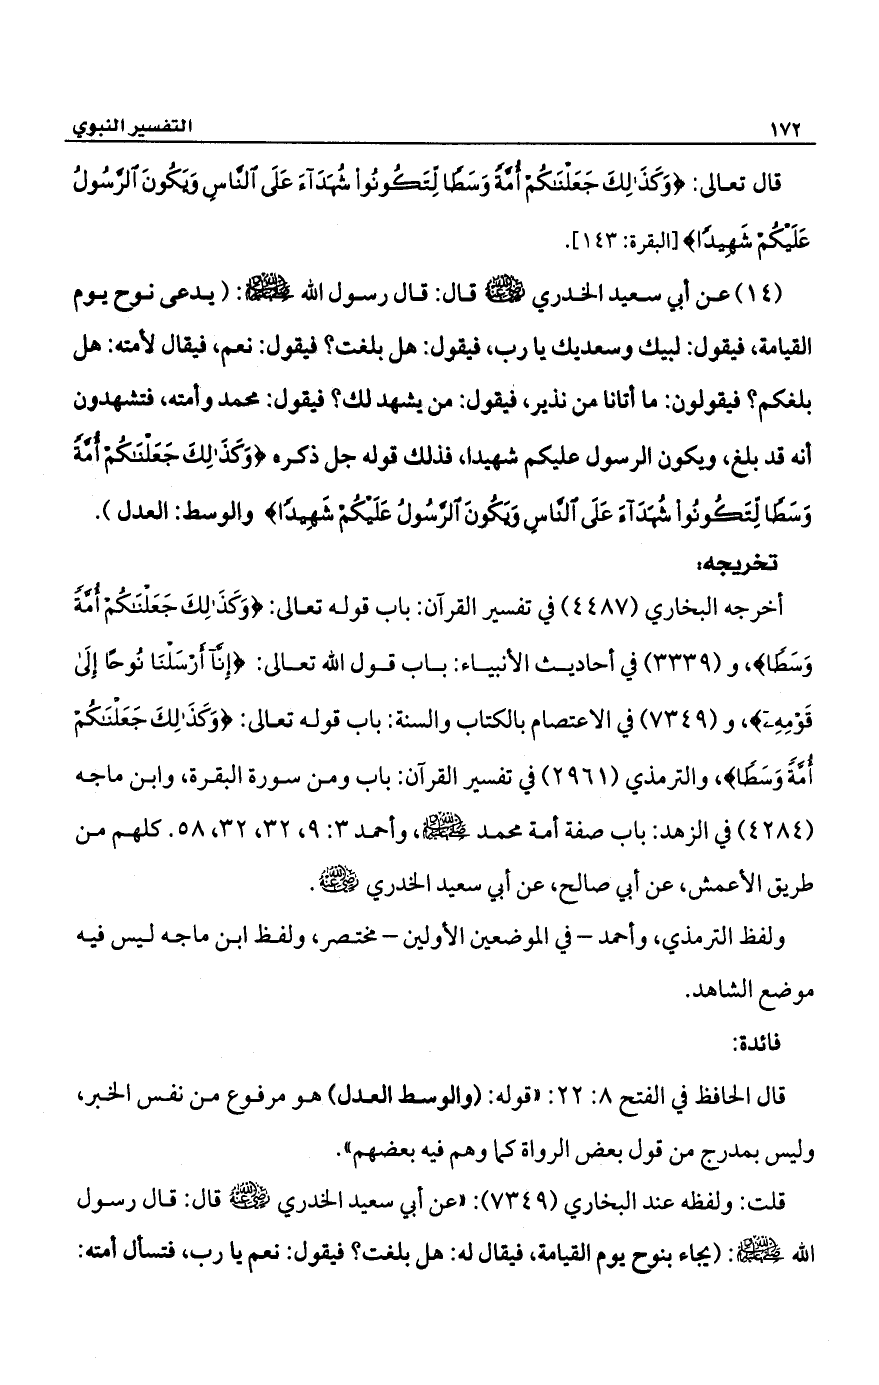 ١٧٢ التفسير النبوي
قال تعالى: ﴿وَكَذَٰلِكَ جَعَلْنَٰكُمْ أُمَّةً وَسَطًا لِّتَكُونُوا۟ شُهَدَآءَ عَلَى ٱلنَّاسِ وَيَكُونَ ٱلرَّسُولُ
عَلَيْكُمْ شَهِيدًا﴾ [البقرة: ١٤٣].
(١٤) عن أبي سعيد الخدري رضي الله عنه قال: قال رسول الله ﷺ: ( يدعى نوح يوم
القيامة، فيقول: لبيك وسعديك يا رب، فيقول: هل بلغت؟ فيقول: نعم، فيقال لأمته: هل
بلغكم؟ فيقولون: ما أتانا من نذير، فيقول: من يشهد لك؟ فيقول: محمد وأمته، فتشهدون
أنه قد بلغ، ويكون الرسول عليكم شهيدا، فذلك قوله جل ذكره ﴿وَكَذَٰلِكَ جَعَلْنَٰكُمْ أُمَّةً
وَسَطًا لِّتَكُونُوا۟ شُهَدَآءَ عَلَى ٱلنَّاسِ وَيَكُونَ ٱلرَّسُولُ عَلَيْكُمْ شَهِيدًا﴾ والوسط: العدل ).
تخريجه:
أخرجه البخاري (٤٤٨٧) في تفسير القرآن: باب قوله تعالى: ﴿وَكَذَٰلِكَ جَعَلْنَٰكُمْ أُمَّةً
وَسَطًا﴾، و (٣٣٣٩) في أحاديث الأنبياء: باب قول الله تعالى: ﴿إِنَّآ أَرْسَلْنَا نُوحًا إِلَىٰ
قَوْمِهِۦٓ﴾، و (٧٣٤٩) في الاعتصام بالكتاب والسنة: باب قوله تعالى: ﴿وَكَذَٰلِكَ جَعَلْنَٰكُمْ
أُمَّةً وَسَطًا﴾، والترمذي (٢٩٦١) في تفسير القرآن: باب ومن سورة البقرة، وابن ماجه
(٤٢٨٤) في الزهد: باب صفة أمة محمد ﷺ، وأحمد ٣: ٩، ٣٢، ٣٢، ٥٨. كلهم من
طريق الأعمش، عن أبي صالح، عن أبي سعيد الخدري رضي الله عنه.
ولفظ الترمذي، وأحمد – في الموضعين الأولين – مختصر، ولفظ ابن ماجه ليس فيه
موضع الشاهد.
فائدة:
قال الحافظ في الفتح ٨: ٢٢: «قوله: (والوسط العدل) هو مرفوع من نفس الخبر،
وليس بمدرج من قول بعض الرواة كما وهم فيه بعضهم».
قلت: ولفظه عند البخاري (٧٣٤٩): «عن أبي سعيد الخدري رضي الله عنه قال: قال رسول
الله ﷺ: (يجاء بنوح يوم القيامة، فيقال له: هل بلغت؟ فيقول: نعم يا رب، فتسأل أمته: